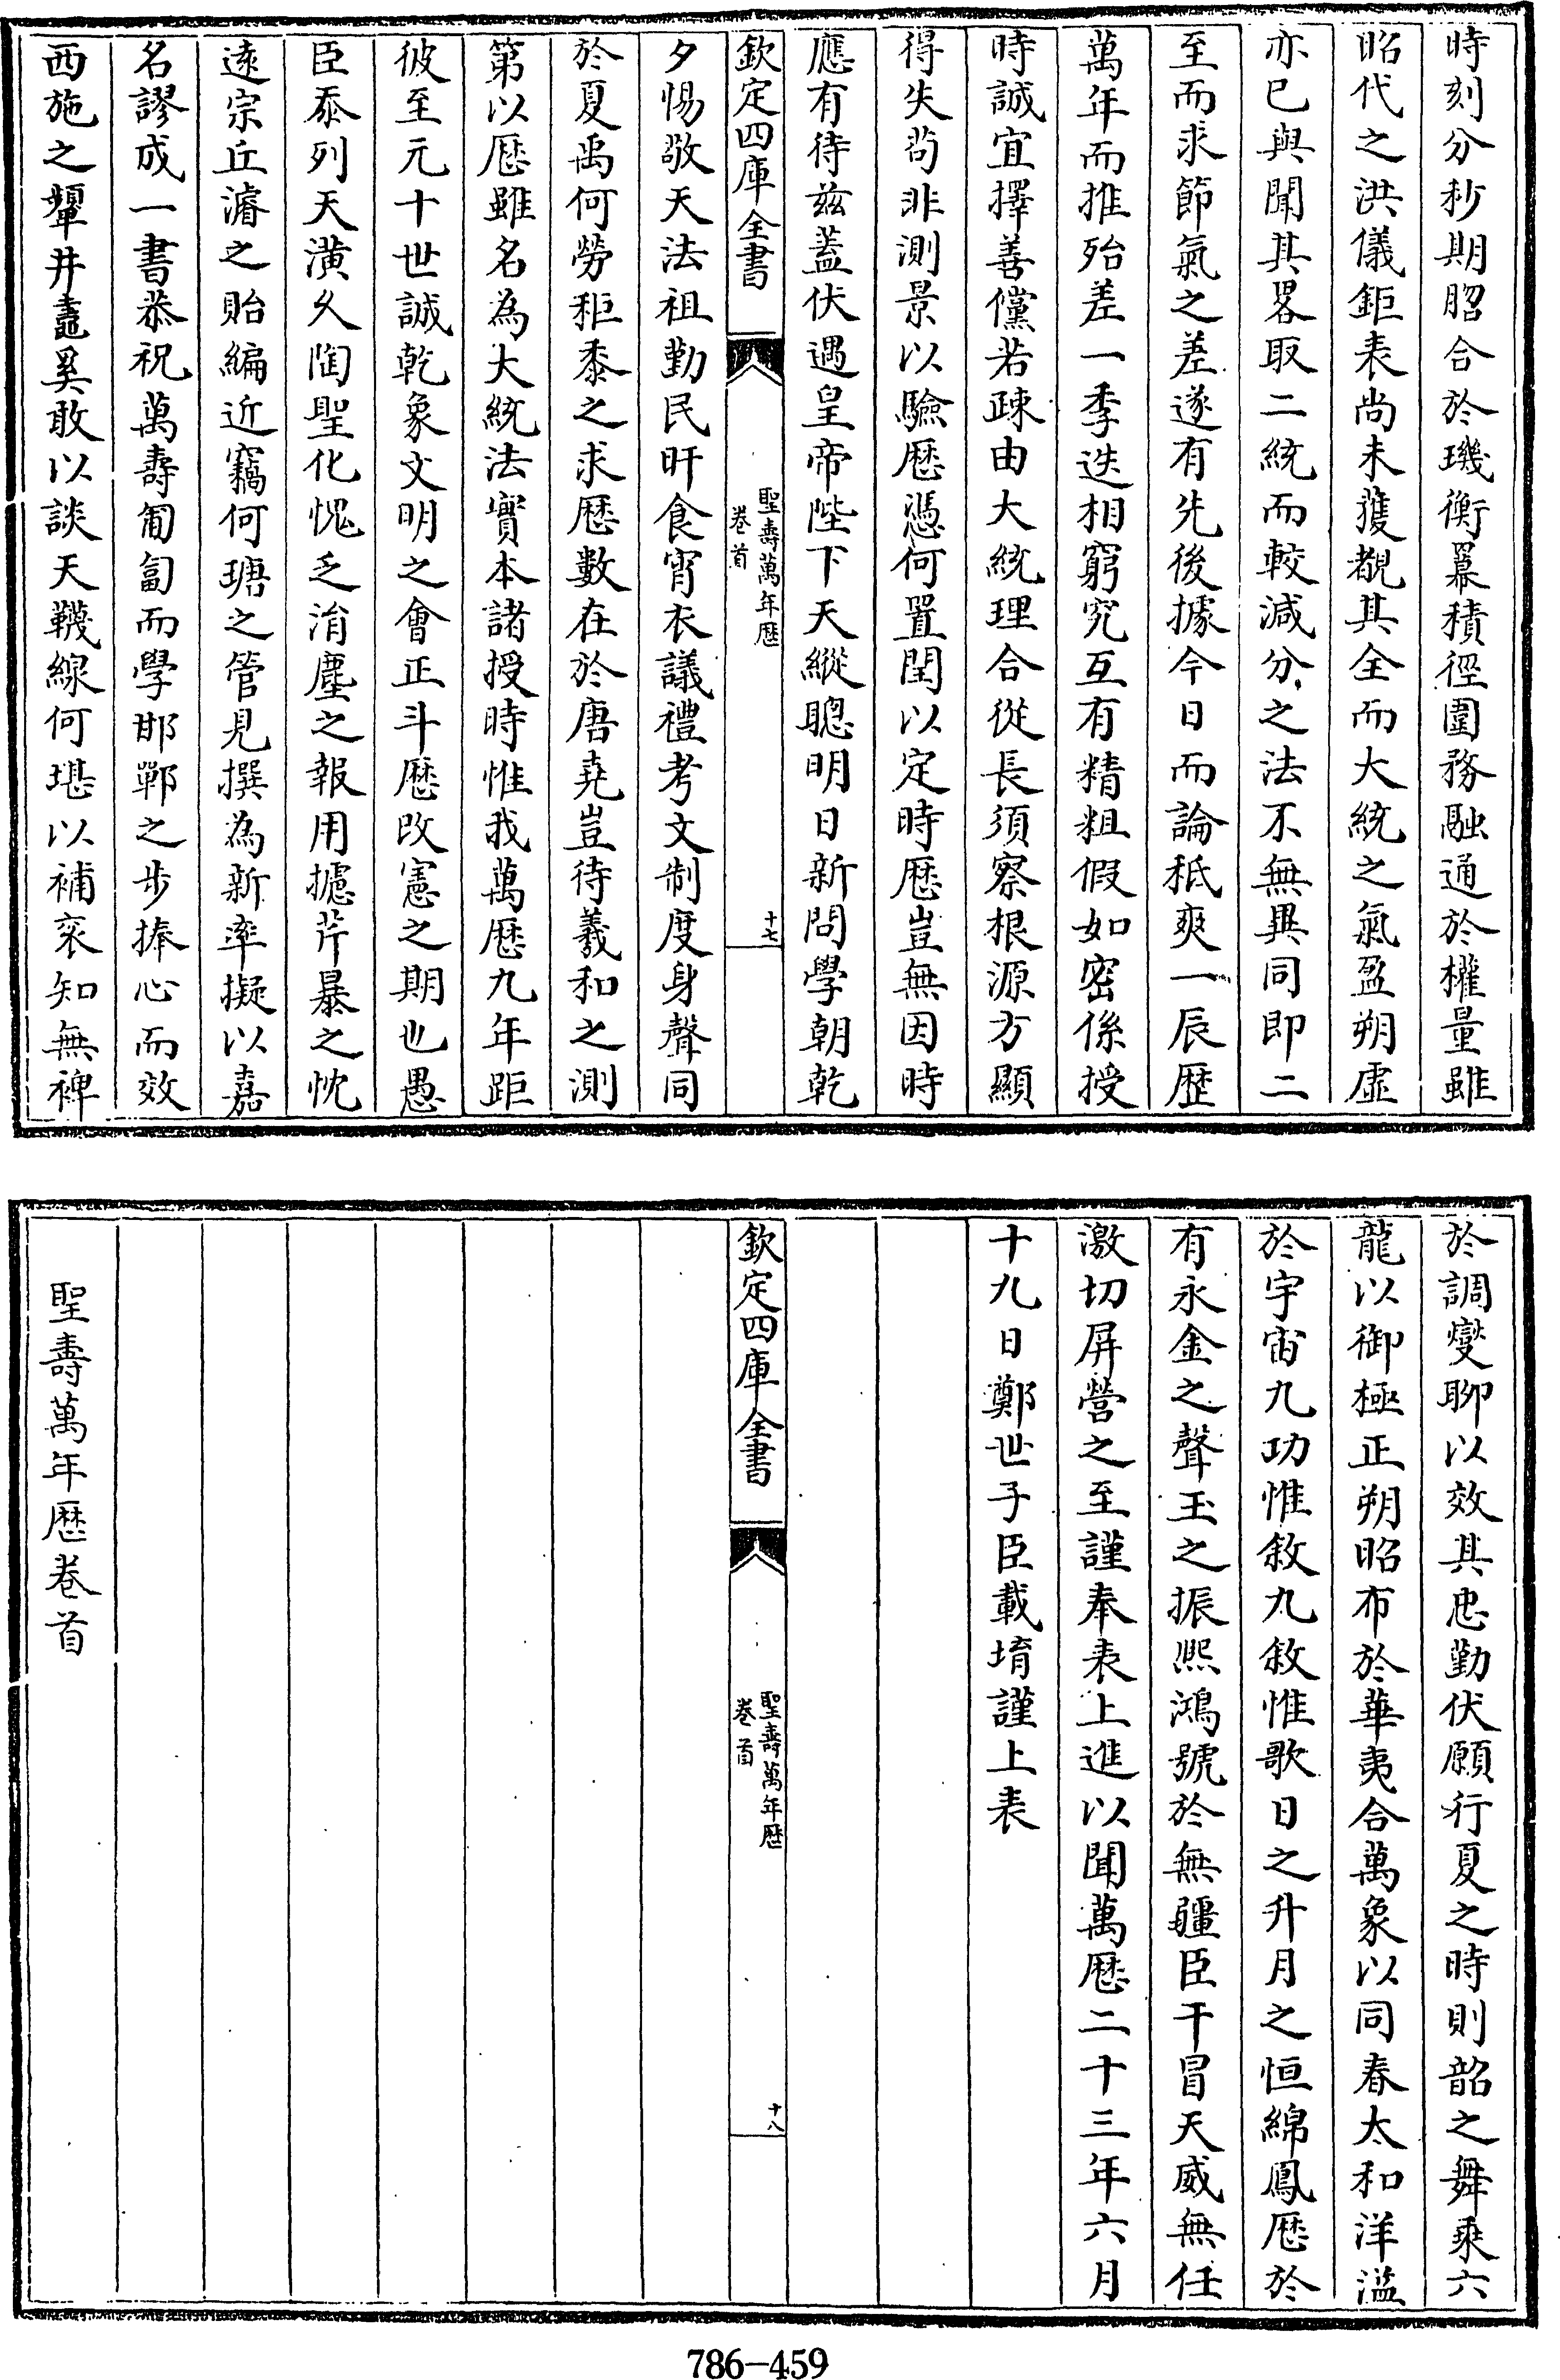 時刻分秒期脗合於璣衡冪積徑圍務融通於權量雖
昭代之洪儀鉅表尚未獲覩其全而大統之氣盈朔虛
亦已與聞其畧取二統而較減分之法不無異同即二
至而求節氣之差遂有先後據今日而論秪爽一辰歷
萬年而推殆差一季迭相窮究互有精粗假如密係授
時誠宜擇善儻若疎由大統理合從長須察根源方顯
得失茍非測景以驗厯憑何置閏以定時厯豈無因時
應有待兹蓋伏遇皇帝陛下天縱聰明日新問學朝乾
欽定四庫全書
聖壽萬年厯
卷首
十七
夕惕敬天法祖勤民旰食宵衣議禮考文制度身聲同
於夏禹何勞秬黍之求厯數在於唐堯豈待羲和之測
第以厯雖名為大統法實本諸授時惟我萬厯九年距
彼至元十世誠乾象文明之會正斗厯改憲之期也愚
臣忝列天潢久陶聖化愧乏涓塵之報用攄芹暴之忱
遠宗丘濬之貽編近竊何瑭之管見撰為新率擬以嘉
名謬成一書恭祝萬壽匍匐而學邯鄲之步捧心而效
西施之顰井鼃奚敢以談天韈線何堪以補衮知無裨
於調燮聊以效其忠勤伏願行夏之時則韶之舞乘六
龍以御極正朔昭布於華夷合萬象以同春太和洋溢
於宇宙九功惟敘九敘惟歌日之升月之恒綿鳳厯於
有永金之聲玉之振熙鴻號於無疆臣干冒天威無任
激切屏營之至謹奉表上進以聞萬厯二十三年六月
十九日鄭世子臣載堉謹上表
欽定四庫全書
聖壽萬年厯
卷首
十八
聖壽萬年厯卷首
786-459